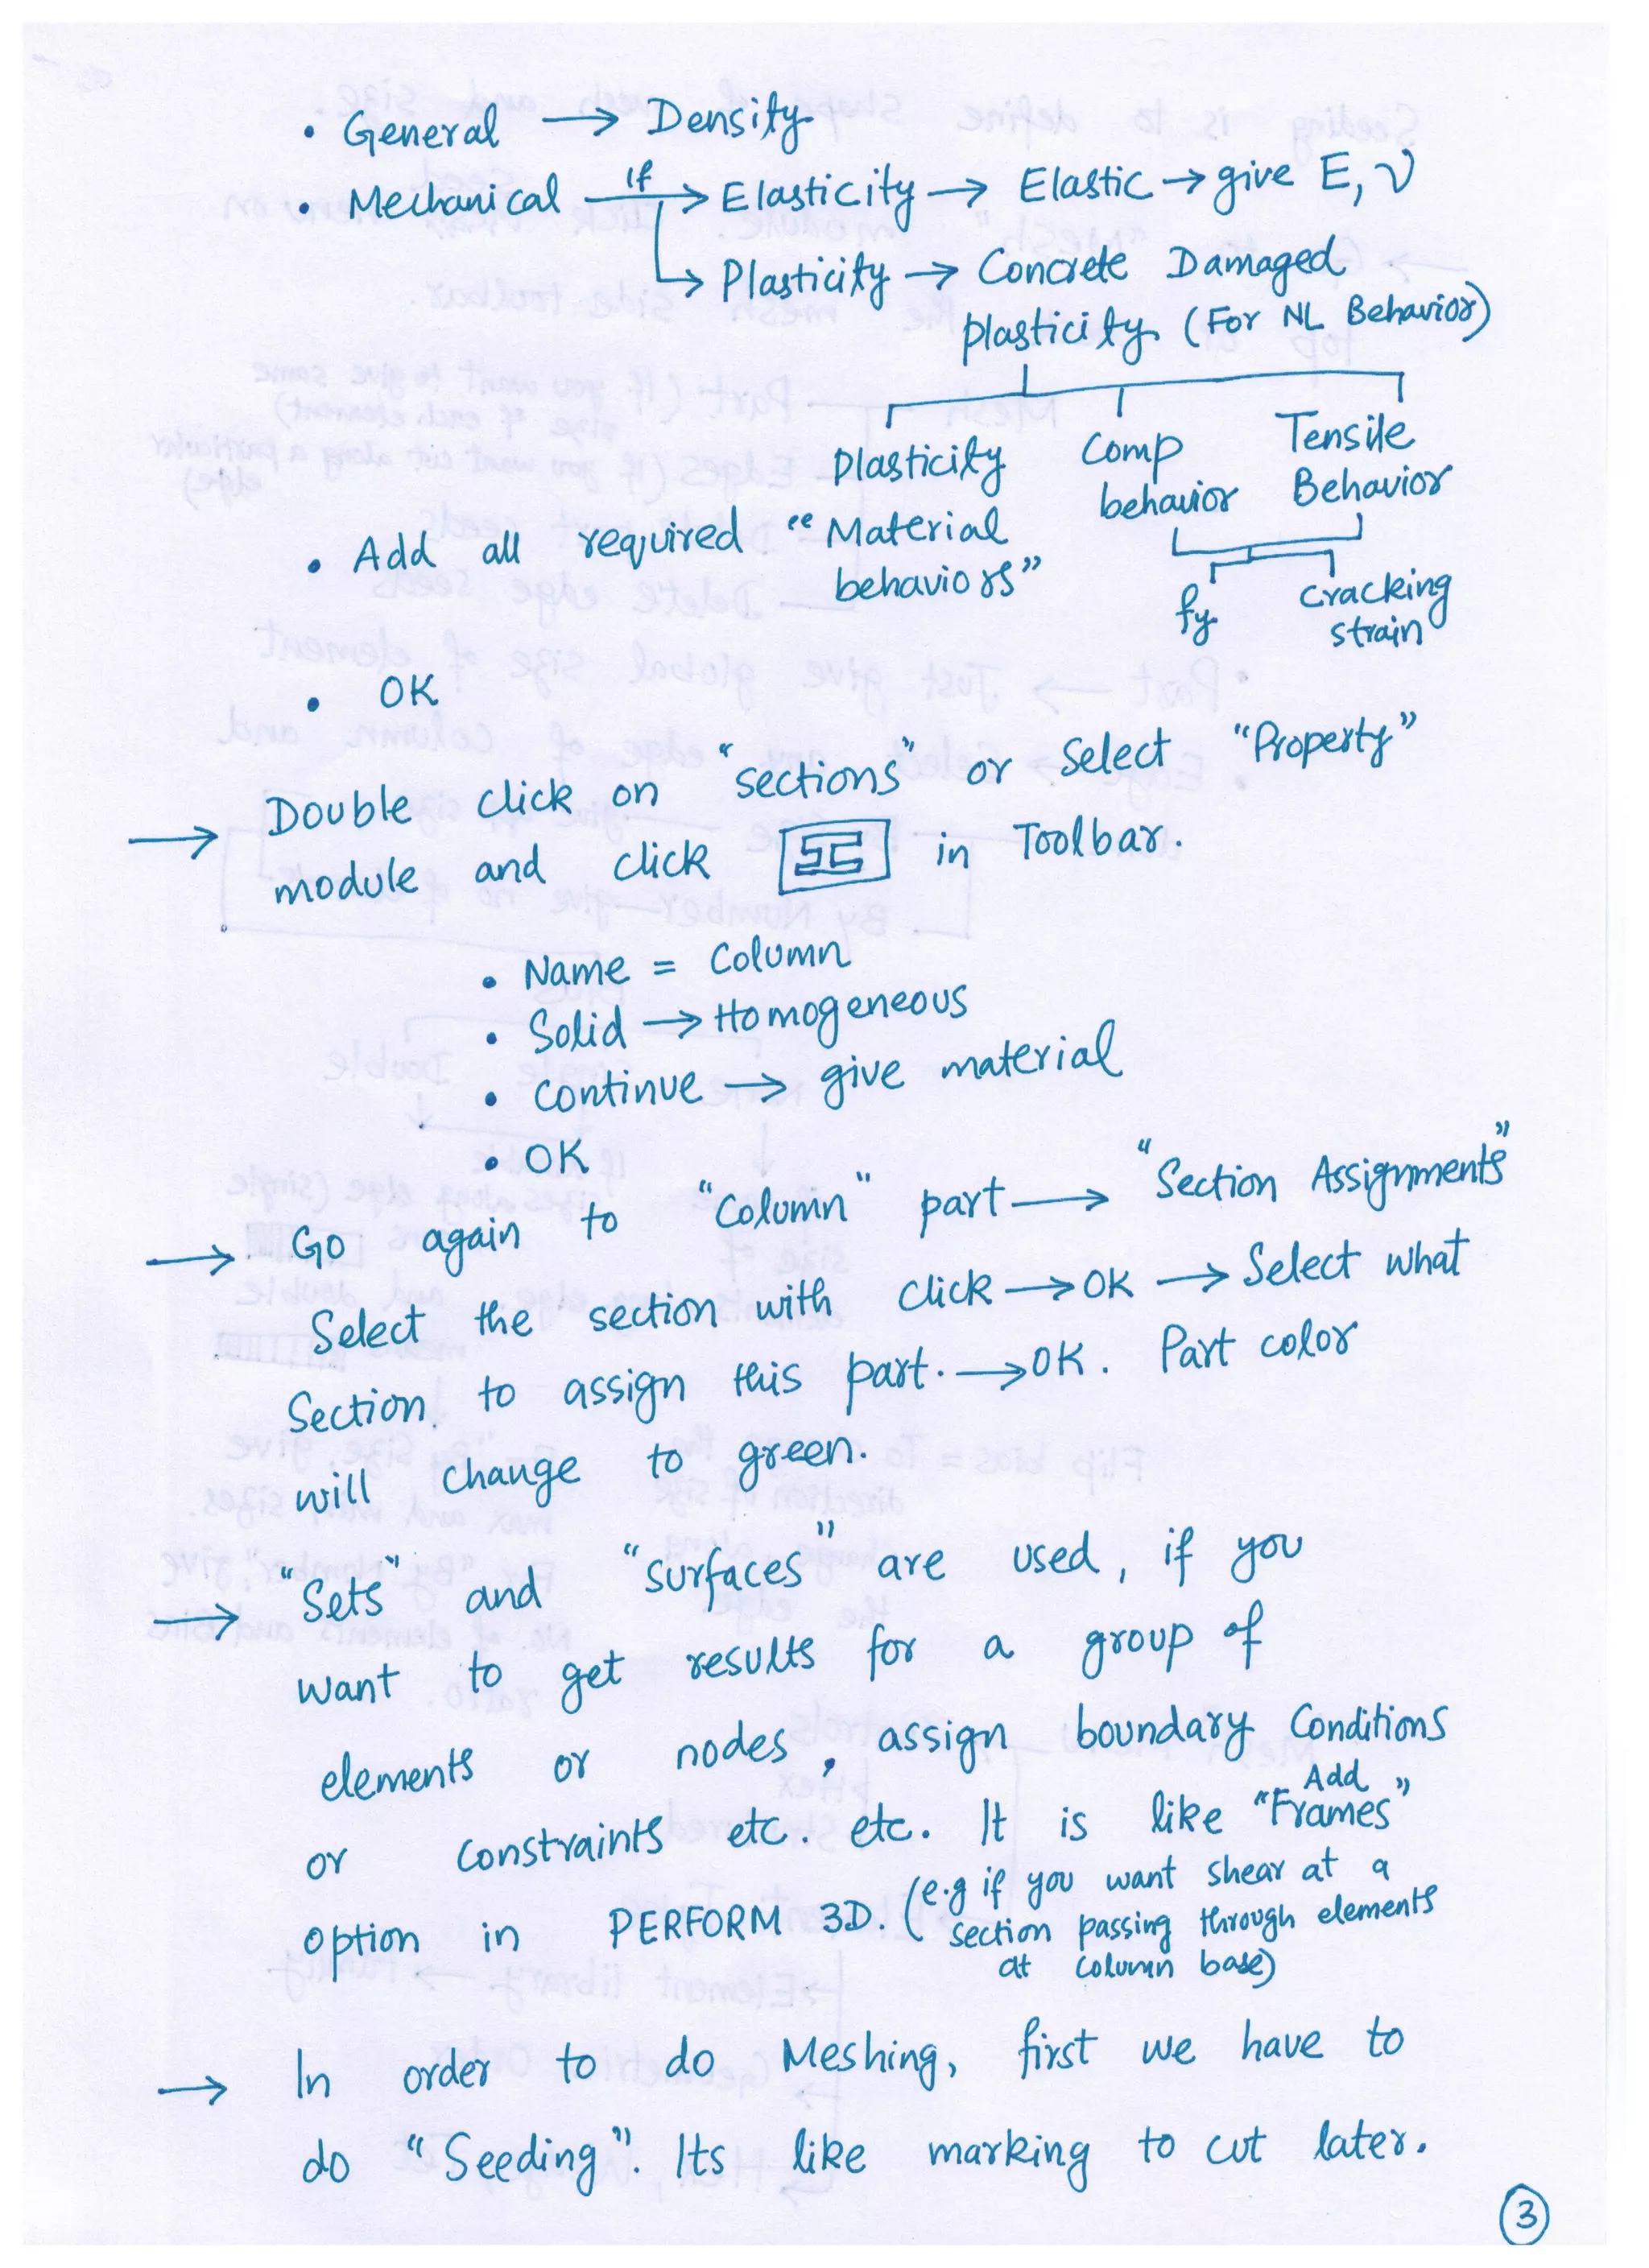 • General → Density
• Mechanical —If→ Elasticity → Elastic → give E, ν
↳ Plasticity → Concrete Damaged
plasticity (For NL Behavior)
Plasticity Comp behavior Tensile Behavior
fy cracking strain
• Add all required "Material
behaviors"
• OK
→ Double click on "sections" or Select "Property"
module and click in Toolbar.
• Name = Column
• Solid → Homogeneous
• Continue → give material
• OK
→ Go again to "Column" part → "Section Assignments"
Select the section with click → OK → Select what
Section to assign this part. → OK. Part color
will change to green.
→ "Sets" and "Surfaces" are used, if you
want to get results for a group of
elements or nodes, assign boundary Conditions
or constraints etc. etc. It is like "Add Frames"
option in PERFORM 3D. (e.g if you want shear at a
section passing through elements
at column base)
→ In order to do Meshing, first we have to
do "Seeding". Its like marking to cut later.
3